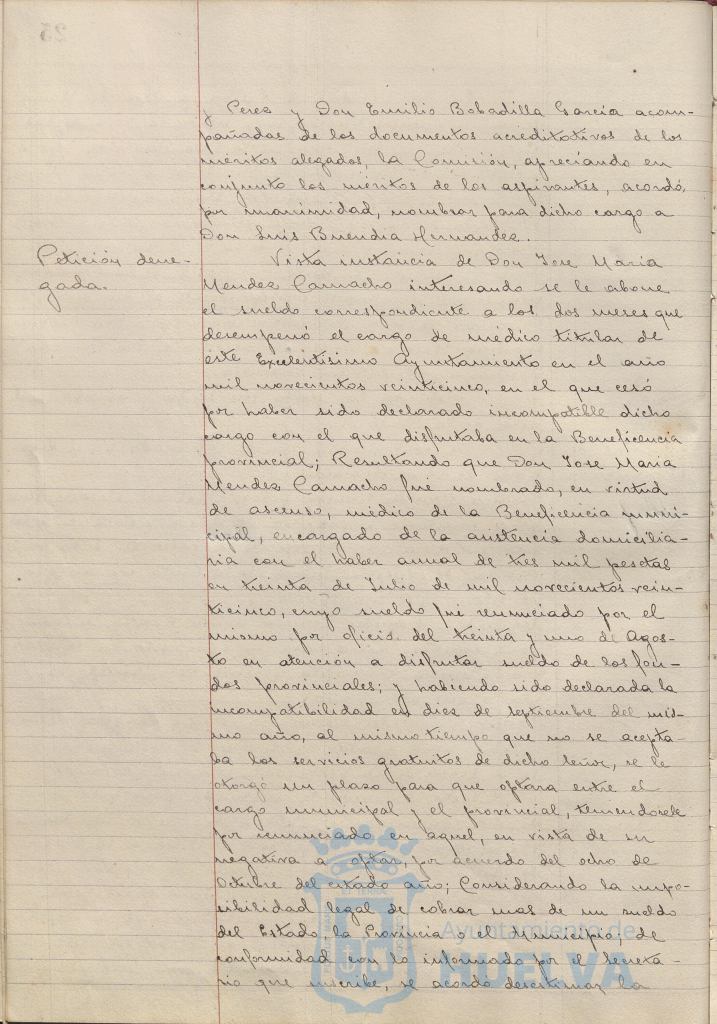 y Perez y Don Emilio Bobadilla García acom-
pañadas de los documentos acreditativos de los
méritos alegados, la Comisión, apreciando en
conjunto los méritos de los aspirantes, acordó,
por unanimidad, nombrar para dicho cargo a
Don Luis Buendia Hernandez.
Petición dene-
gada.
Vista instancia de Don Jose Maria
Mendez Camacho interesando se le abone
el sueldo correspondiente a los dos meses que
desempeñó el cargo de médico titular de
este Excelentisimo Ayuntamiento en el año
mil novecientos veinticinco, en el que cesó
por haber sido declarado incompatible dicho
cargo con el que disfrutaba en la Beneficencia
provincial; Resultando que Don Jose Maria
Mendez Camacho fué nombrado, en virtud
de ascenso, médico de la Beneficencia muni-
cipal, encargado de la asistencia domicilia-
ria con el haber anual de tres mil pesetas
en treinta de Julio de mil novecientos vein-
ticinco, cuyo sueldo fué renunciado por el
mismo por oficio del treinta y uno de Agos-
to en atención a disfrutar sueldo de los fon-
dos provinciales; y habiendo sido declarada la
incompatibilidad en diez de septiembre del mis-
mo año, al mismo tiempo que no se acepta-
ba los servicios gratuitos de dicho señor, se le
otorgó un plazo para que optara entre el
cargo municipal y el provincial, teniendosele
por renunciado en aquel, en vista de su
negativa a optar, por acuerdo del ocho de
Octubre del citado año; Considerando la impo-
sibilidad legal de cobrar mas de un sueldo
del Estado, la Provincia y el Municipio; de
conformidad con lo informado por el Secreta-
rio que suscribe, se acordó desestimar la
Ayuntamiento de
HUELVA